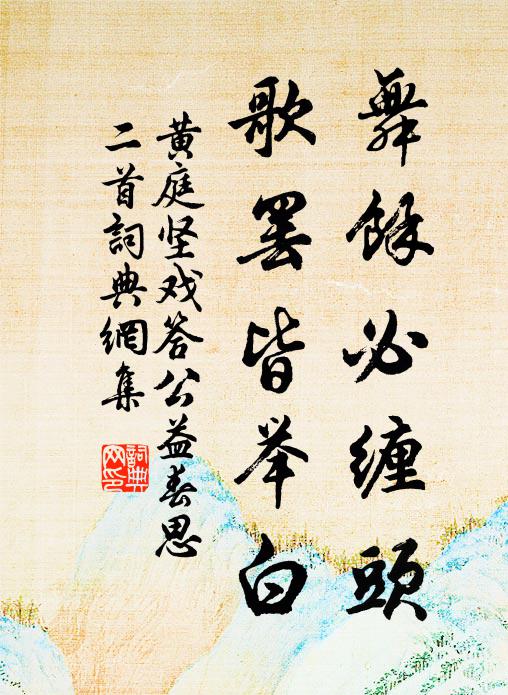 舞餘必纏頭
歌罢皆举白
黄庭坚戏答公益春思
二首詞典網集
詞典
网印